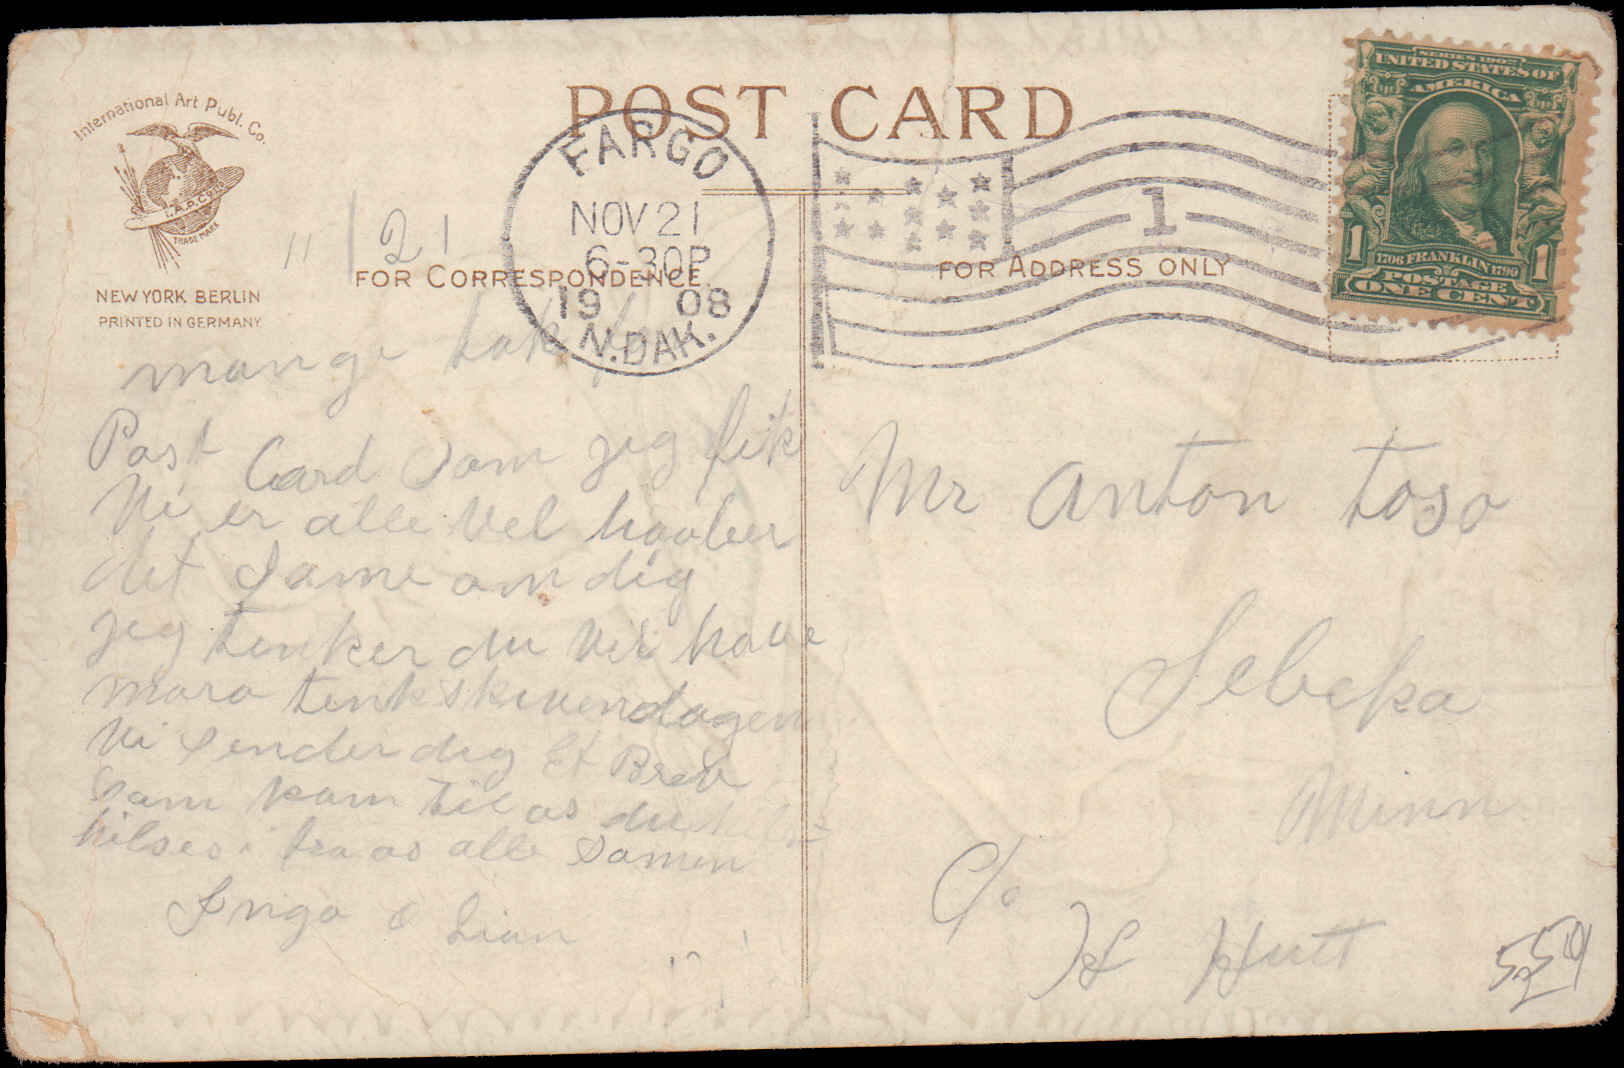 International Art Publ. Co.
I.A.P.C
TRADE MARK
NEW YORK BERLIN
PRINTED IN GERMANY
POST CARD
FARGO
NOV 21
6-30P
1908
N.DAK.
1
SERIES 1902
UNITED STATES OF
AMERICA
1 1
1706 FRANKLIN 1790
POSTAGE
ONE CENT
11 | 21
FOR CORRESPONDENCE
FOR ADDRESS ONLY
mange tak for
Post Card Som jeg fik
Vi er alle Vel haaber
det Same om dig
jeg tenker du Vil have
mora
Vi Sender dig Et Brev
Som kom til os du
hilses fra os alle Samen
Inga o
Mr Anton Toso
Sebeka
Minn
C/o
H Hutt